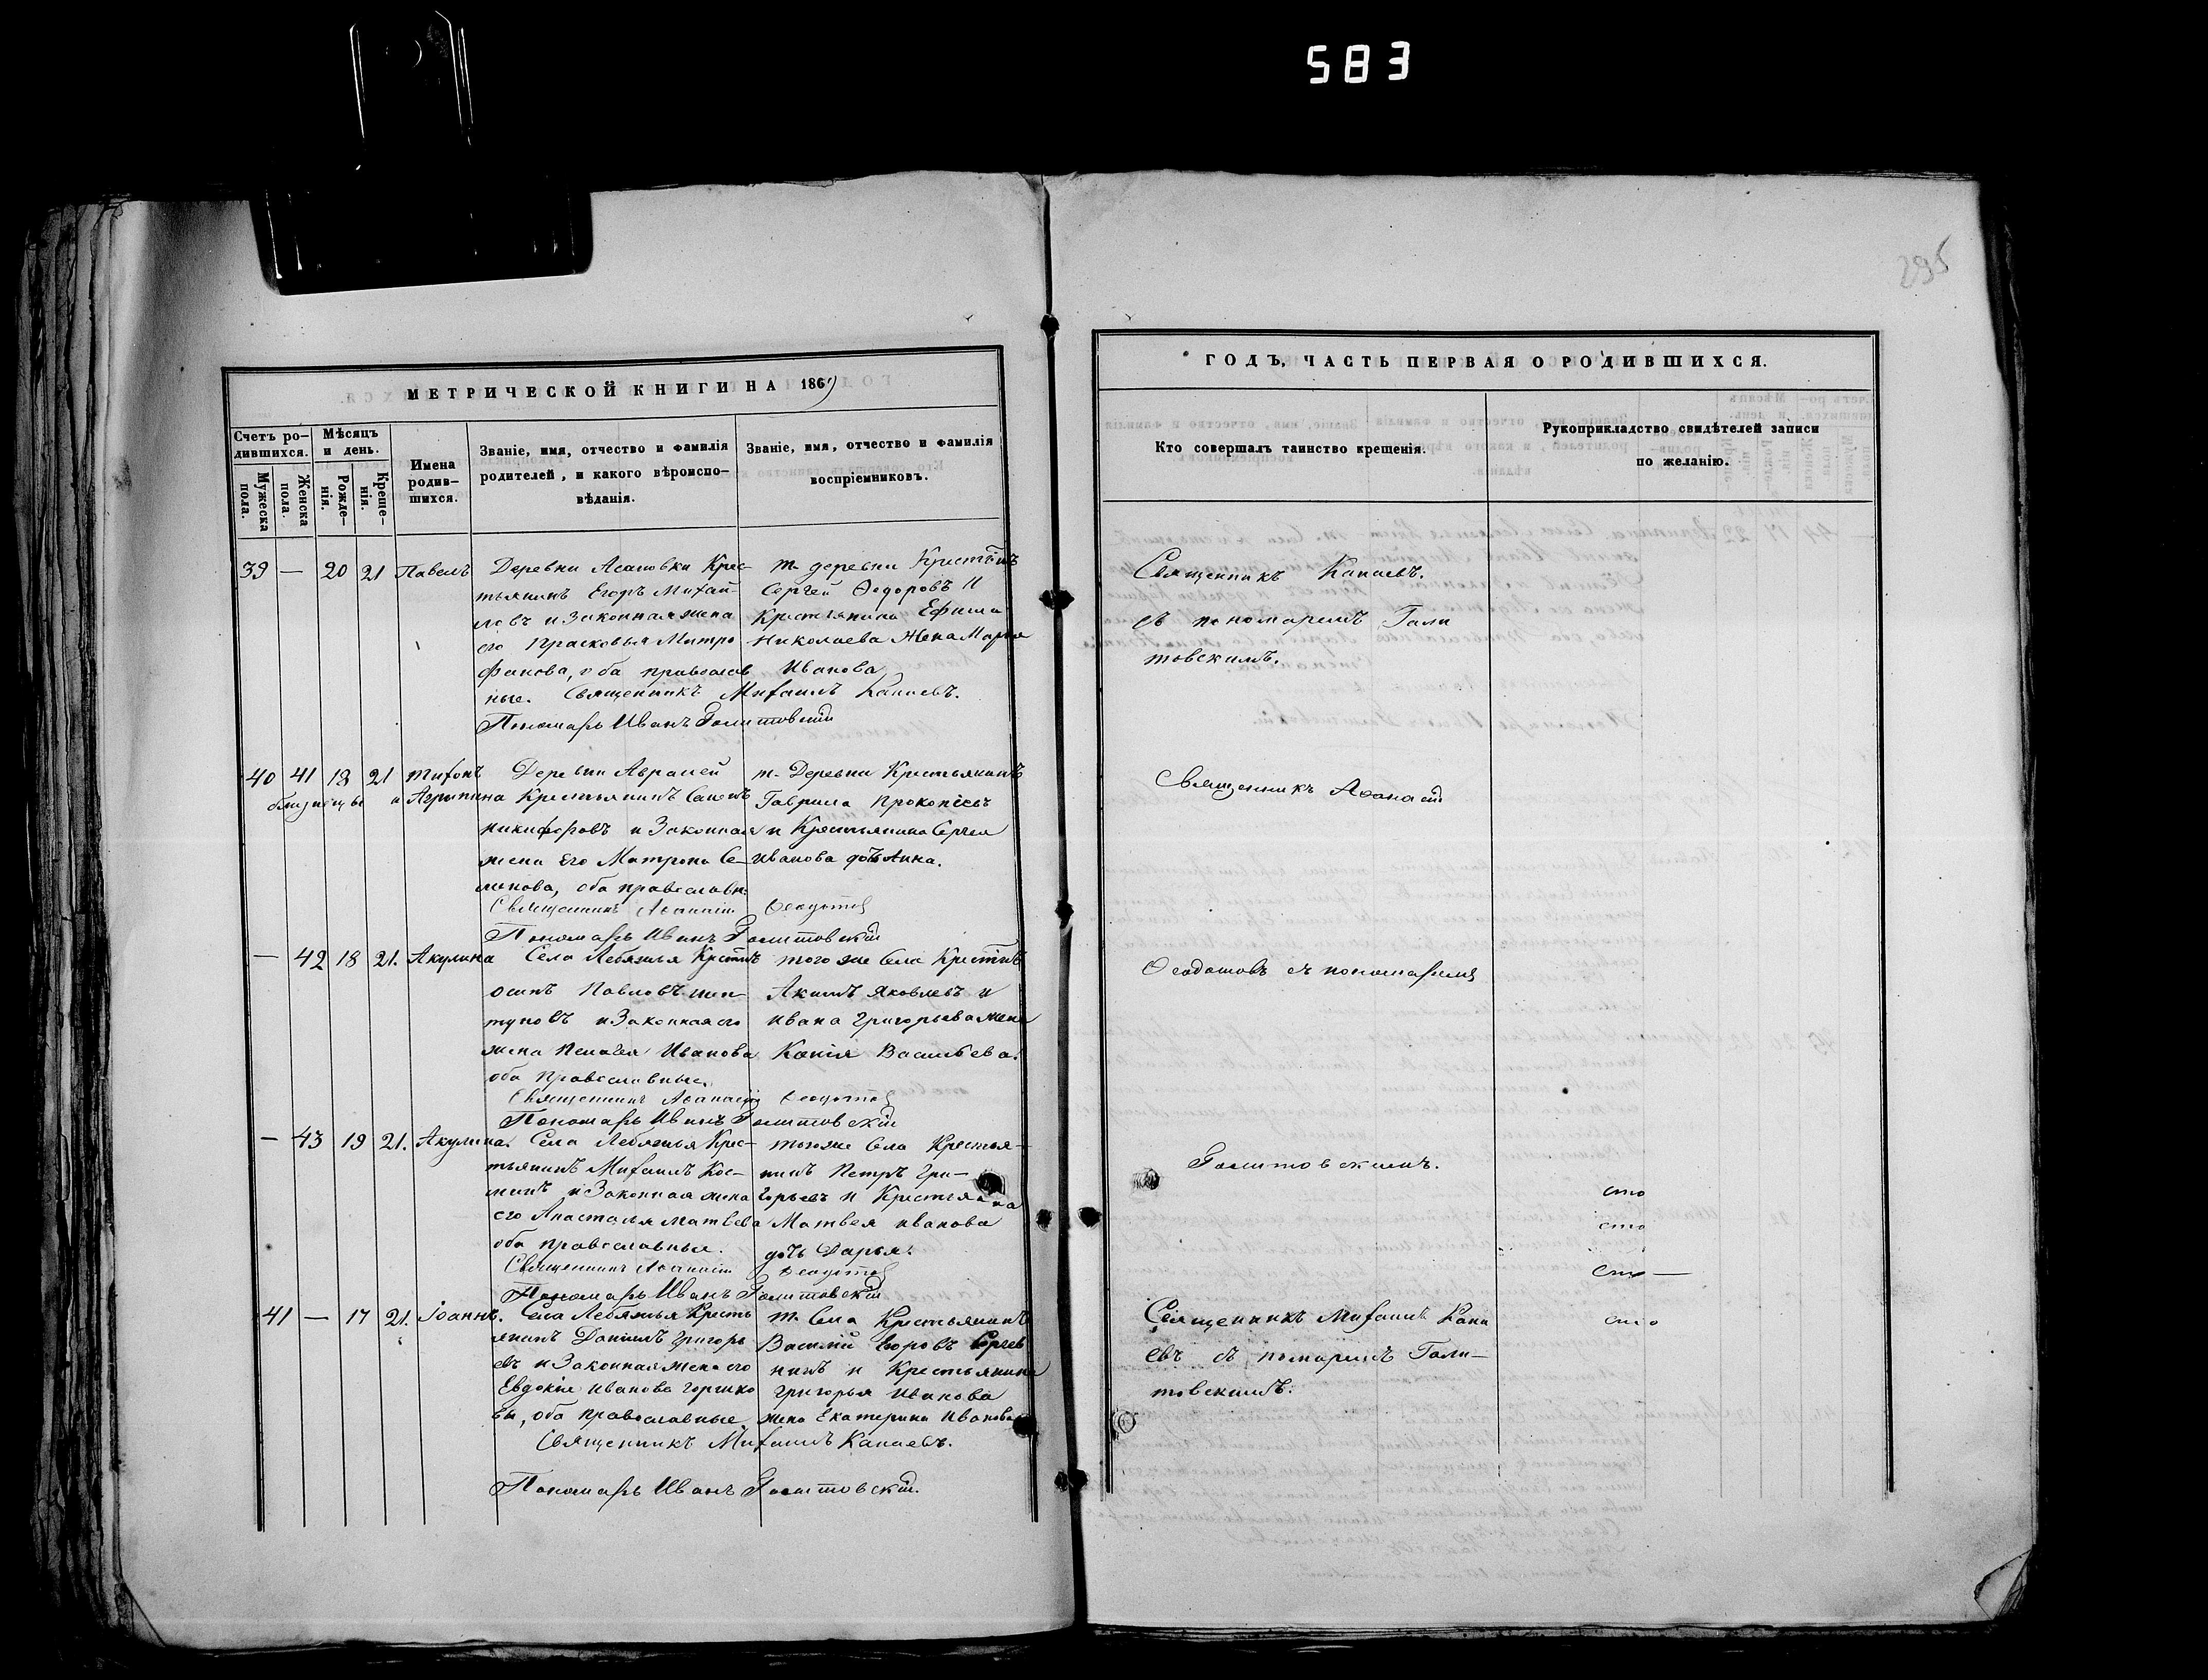 583
295
МЕТРИЧЕСКОЙ КНИГИ НА 1869
ГОДЪ, ЧАСТЬ ПЕРВАЯ О РОДИВШИХСЯ.
Счетъ ро-
дившихся.
Мужеска
пола.
Женска
пола.
Мѣсяцъ
и день.
Рожде-
нія.
Креще-
нія.
Имена
родив-
шихся.
Званіе, имя, отчество и фамилія
родителей, и какого вѣроиспо-
вѣданія.
Званіе, имя, отчество и фамилія
воспріемниковъ.
Кто совершалъ таинство крещенія.
Рукоприкладство свидѣтелей записи
по желанію.
39 — 20 21 Павелъ
Деревни Крес-
тьянинъ Егоръ Михай-
ловъ и Законная жена
его Прасковья Митро
фанова, оба православ
ные. Священникъ Михаилъ Канаевъ.
Пономарь Иванъ Голитовскій
т. деревни Крестьянинъ
Сергей Ѳедоровъ И
Крестьянина Ефима
Николаева Жена Марья
Иванова
Священникъ Канаевъ.
съ пономаремъ Голи
товскимъ.
40 41 18 21 Тихонъ
близнецы и Агрипина
Деревни
Крестьянинъ
Никифоровъ и Законная
жена Его Матрона Се-
менова, оба православн.
Священникъ Аѳанасій Ѳеодотов
Пономарь Иванъ Голитовскій
т. Деревни Крестьянинъ
Гаврила Прокопіевъ
и Крестьянина Сергея
Иванова дочь Анна.
Священникъ Аѳанасій
— 42 18 21. Акулина
Села Лебяжья
осипъ Павловъ
и Законная его
жена Пелагея Иванова
оба Православные.
Священникъ Аѳанасій Ѳеодотов
Пономарь Иванъ Голитовскій
того же Села
Акимъ Яковлевъ и
Ивана Григорьева жена
Васильева.
Ѳеодотовъ съ пономаремъ
— 43 19 21. Акулина.
Села Лебяжья Крес-
тьянинъ Михаилъ Кос-
минъ и Законная жена
его Анастасья Матвева
оба православныя.
Священникъ Аѳанасій Ѳеодотов
Пономарь Иванъ Голитовскій
тогоже Села Крестья-
нинъ Петръ Гри-
горьевъ и Крестьянина
Матвея Иванова
дочь Дарья.
Голитовскимъ.
сто
сто
сто —
41 — 17 21. Іоаннъ.
Села Лебяжья Кресть
янинъ Даніилъ Григорь
евъ и Законная жена его
Евдокія Иванова Горшко
вы, оба православные
Священникъ Михаилъ Канаевъ.
Пономарь Иванъ Голитовскій.
т. Села Крестьянинъ
Василій
и Крестьянина
Григорья Иванова
жена Екатерина Иванова
Священникъ Михаилъ Кана
евъ съ Голи-
товскимъ.
сто